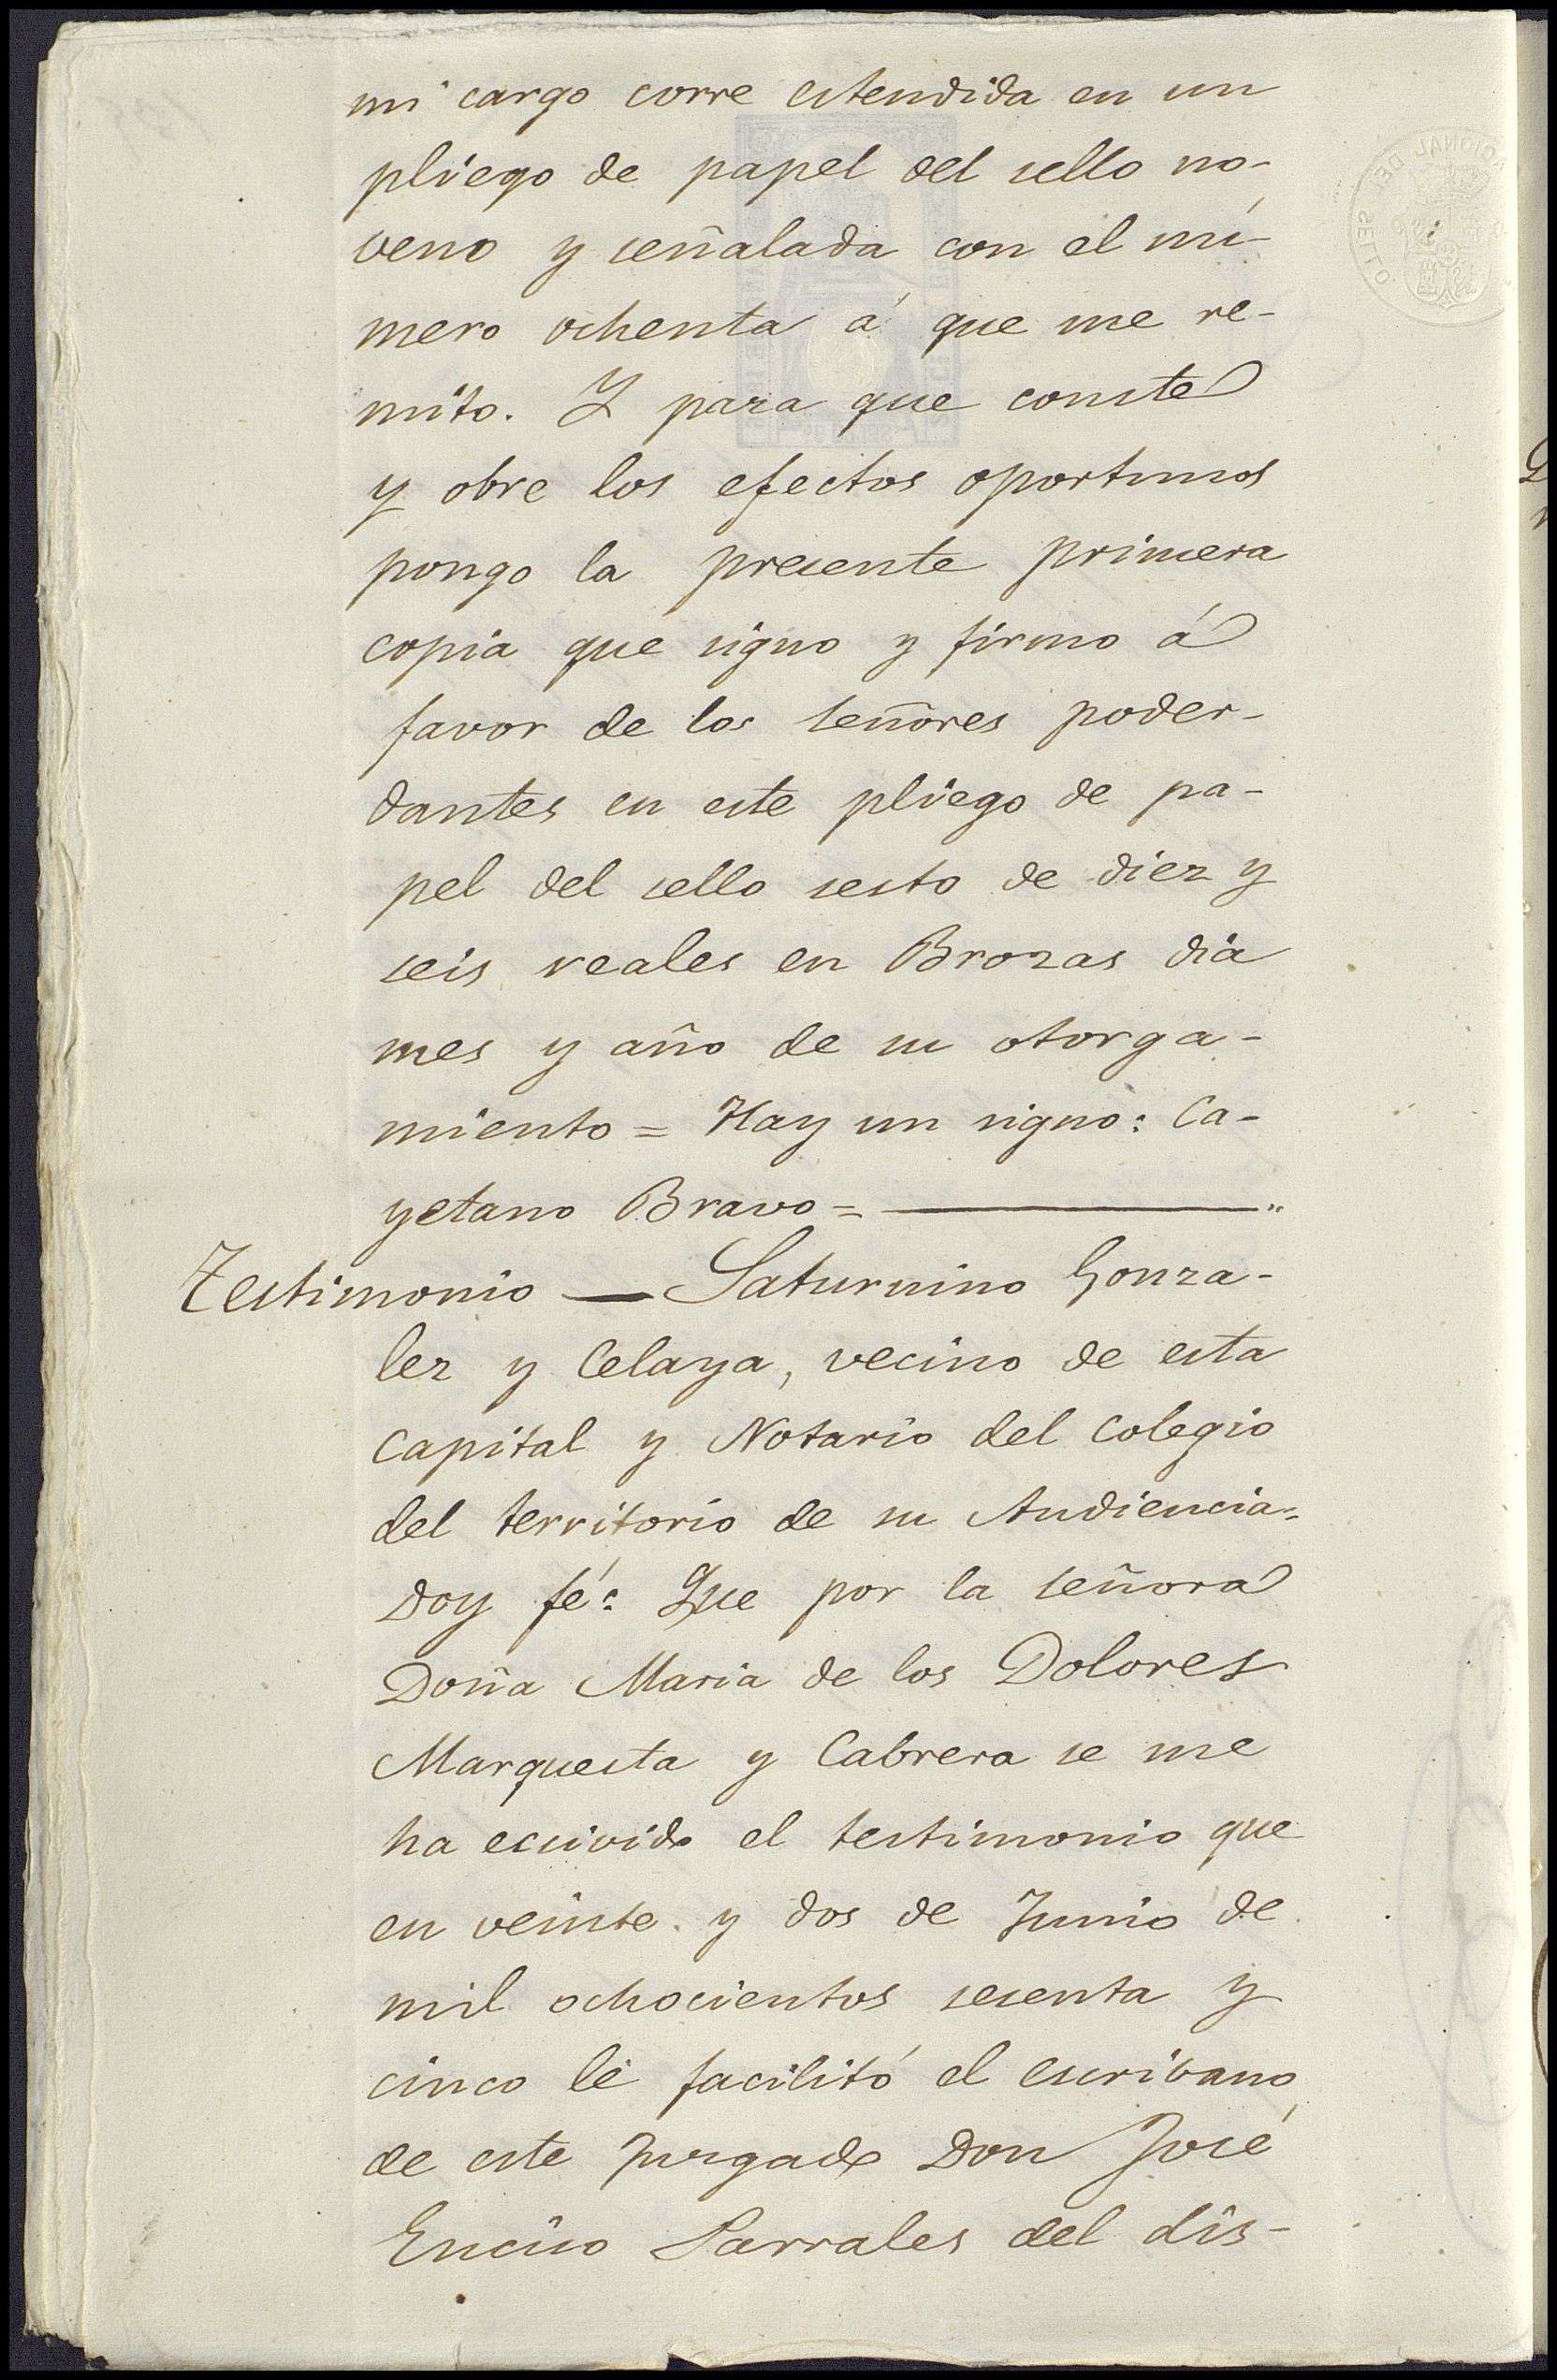 mi cargo corre estendida en un
pliego de papel del sello no-
veno y señalada con el nú-
mero ochenta á que me re-
mito. Y para que conste
y obre los efectos oportunos
pongo la presente primera
copia que signo y firmo á
favor de los señores poder-
dantes en este pliego de pa-
pel del sello sesto de diez y
seis reales en Brozas dia
mes y año de su otorga-
miento = Hay un signo: Ca-
yetano Bravo = ———"
Testimonio — Saturnino Gonza-
lez y Celaya, vecino de esta
Capital y Notario del Colegio
del territorio de su Audiencia=
Doy fé: Que por la señora
Doña Maria de los Dolores
Marquesta y Cabrera se me
ha ecsivido el testimonio que
en veinte y dos de Junio de
mil ochocientos sesenta y
cinco le facilitó el escribano
de este Juzgado Don José
Enciso Parrales del dis-